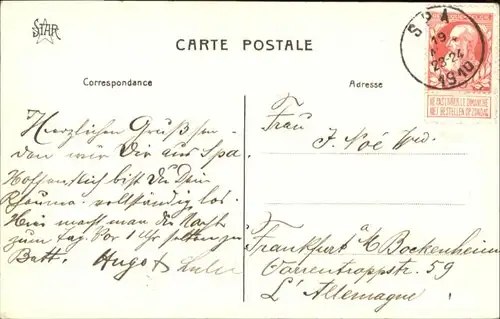 STAR
CARTE POSTALE
SPA
19
23-24
1910
NE PAS LIVRER LE DIMANCHE
NIET BESTELLEN OP ZONDAG
Correspondance
Adresse
Herzlichen Gruß sen-
den wir Dir aus Spa
Hoffentlich bist Du Dein
Rheuma vollständig los.
Hier macht man die Nacht
zum Tag. Vor 1 Uhr selten zu
Bett. Hugo & Lulu
Frau
J. Noé Wwe.
Frankfurt a/ Bockenheim
Varrentrappstr. 59
L'Allemagne